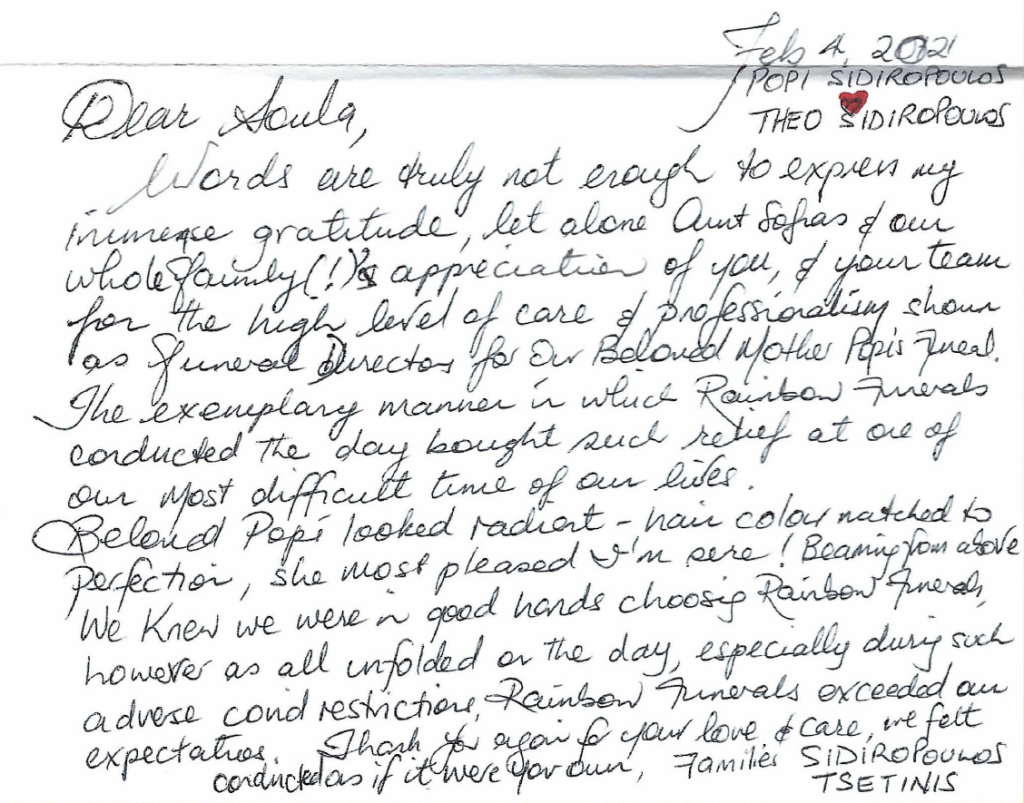 Feb 4, 2021
POPI SIDIROPOULOS
THEO SIDIROPOULOS
Dear Soula,
Words are truly not enough to express my
immense gratitude, let alone Aunt Sofias & our
whole family(!)'s appreciation of you, & your team
for the high level of care & professionalism shown
as Funeral Director for Our Beloved Mother Popi's Funeral.
The exemplary manner in which Rainbow Funerals
conducted the day bought such relief at one of
our most difficult time of our lives.
Beloved Popi looked radiant - hair colour matched to
perfection, she most pleased I'm sure! Beaming from above
We Knew we were in good hands choosing Rainbow Funerals,
however as all unfolded on the day, especially during such
adverse covid restrictions, Rainbow Funerals exceeded our
expectations. Thank You again for your love & care, we felt
conducted as if it were your own, Families SIDIROPOULOS
TSETINIS